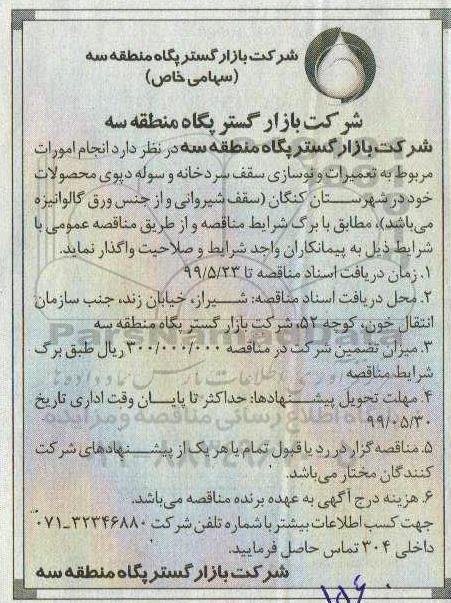 شرکت بازار گستر پگاه منطقه سه
(سهامی خاص)
شرکت بازار گستر پگاه منطقه سه
شرکت بازار گستر پگاه منطقه سه در نظر دارد انجام امورات
مربوط به تعمیرات و نوسازی سقف سردخانه و سوله دپوی محصولات
خود در شهرستان کنگان (سقف شیروانی و از جنس ورق گالوانیزه
می‌باشد)، مطابق با برگ شرایط مناقصه و از طریق مناقصه عمومی با
شرایط ذیل به پیمانکاران واجد شرایط و صلاحیت واگذار نماید.
۱. زمان دریافت اسناد مناقصه تا ۹۹/۵/۲۳
۲. محل دریافت اسناد مناقصه: شیراز، خیابان زند، جنب سازمان
انتقال خون، کوچه ۵۲، شرکت بازار گستر پگاه منطقه سه
۳. میزان تضمین شرکت در مناقصه ۳۰۰/۰۰۰/۰۰۰ ریال طبق برگ
شرایط مناقصه
۴. مهلت تحویل پیشنهادها: حداکثر تا پایان وقت اداری تاریخ
۹۹/۰۵/۳۰
۵. مناقصه‌گزار در رد یا قبول تمام یا هر یک از پیشنهادهای شرکت
کنندگان مختار می‌باشد.
۶. هزینه درج آگهی به عهده برنده مناقصه می‌باشد.
جهت کسب اطلاعات بیشتر با شماره تلفن شرکت ۳۲۳۴۶۸۸۰-۰۷۱
داخلی ۳۰۴ تماس حاصل فرمایید.
شرکت بازار گستر پگاه منطقه سه
ParsNamadData